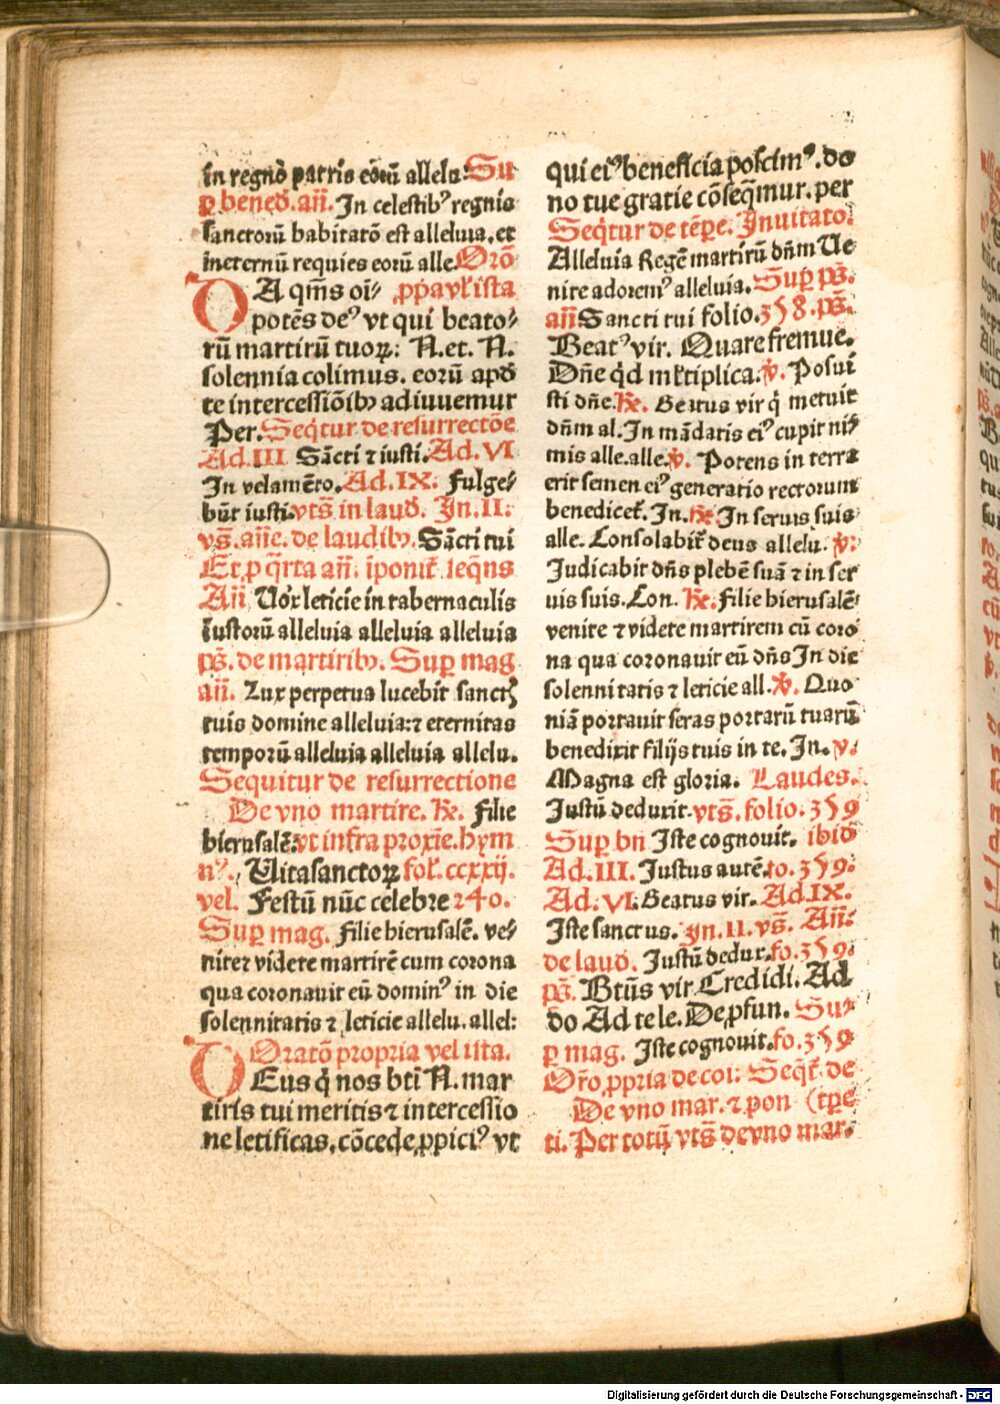 in regno patris eorū allelu. Su
ꝑ bened̄. añ. In celestibꝰ regnis
sanctorū habitatō est alleluia. et
ineternū requies eorū alle. Orō
DA qm̄s oī- ꝓpa vl̄ ista
potēs deꝰ vt qui beato-
rū martirū tuoꝝ: N. et. N.
solennia colimus. eorū apd̄
te intercessiōibꝫ adiuuemur
Per. Seq̄tur de resurrectōe
Ad. III Sācti ⁊ iusti. Ad. VI
In velamēto. Ad. IX. Fulge-
būt iusti. vts̄ in laud̄. In. II.
vs̄. añe. de laudibꝫ. Sācti tui
Et ꝑ q̄rta añ. īponit̄ seq̄ns
Añ Vox leticie in tabernaculis
iustorū alleluia alleluia alleluia
ps̄. de martiribꝫ. Suꝑ mag
añ. Lux perpetua lucebit sanctꝭ
tuis domine alleluia: ⁊ eternitas
temporū alleluia alleluia allelu.
Sequitur de resurrectione
De vno martire. ꝶ. Filie
hierusalē. vt infra proxīe. hym
nꝰ. Vita sanctoꝝ fol̄. ccxxij.
vel. Festū nūc celebre 240.
Suꝑ mag. Filie hierusalē. ve-
nite ⁊ videte martirē cum corona
qua coronauit eū dominꝰ in die
solennitatis ⁊ leticie allelu. allel:
Oratō propria vel ista.
DEus q̄ nos btī N. mar
tiris tui meritis ⁊ intercessio
ne letificas, cōcede ꝓpiciꝰ vt
qui eiꝰ beneficia poscimꝰ. do
no tue gratie cōseq̄mur. per
Seq̄tur de tēꝑe. Inuitato.
Alleluia Regē martirū dn̄m Ue
nite adoremꝰ alleluia. Suꝑ ps̄.
añ Sancti tui folio. 358. ps̄.
Beatꝰ vir. Quare fremue.
Dn̄e q̄d ml̄tiplica. ℣. Posui
sti dn̄e. ꝶ. Beatus vir q̄ metuit
dn̄m al. In mādatis eiꝰ cupit ni-
mis alle. alle. ℣. Potens in terra
erit semen eiꝰ generatio rectorum
benedicet̄. In. ꝶ In seruis suis
alle. Consolabit̄ deus allelu. ℣.
Judicabit dn̄s plebē suā ⁊ in ser
uis suis. Con. ꝶ. Filie hierusalē
venite ⁊ videte martirem cū coro
na qua coronauit eū dn̄s In die
solennitatis ⁊ leticie all. ℣. Quo
niā portauit seras portarū tuarū
benedixit filijs tuis in te. In. ℣.
Magna est gloria. Laudes.
Justū deduxit. vts̄. folio. 359
Suꝑ bn̄ Iste cognouit. ibid̄
Ad. III. Justus autē. fo. 359.
Ad. VI. Beatus vir. Ad. IX.
Iste sanctus. In. II. vs̄. Añ:
de laud̄. Justū dedux. fo. 359.
ps̄. Btūs vir Credidi. Ad
do Ad te le. De ꝓfun. Su-
ꝑ mag. Iste cognouit. fo. 359
Or̄o. ꝓpria de coī: Seqt̄. de
De vno mar. ⁊ pon (tꝑe
ti. Per totū vts̄ de vno mar.
Digitalisierung gefördert durch die Deutsche Forschungsgemeinschaft - DFG